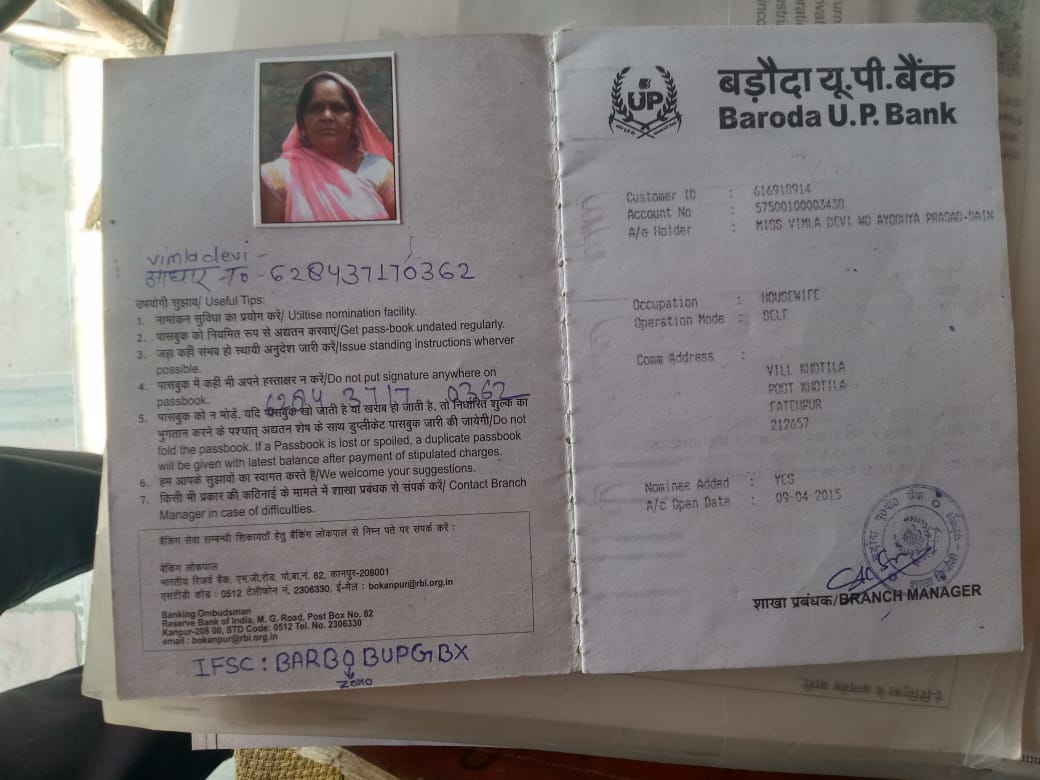 vimla devi -
आधार न0 - 628437170362
उपयोगी सुझाव/ Useful Tips:
1. नामांकन सुविधा का प्रयोग करें/ Utilise nomination facility.
2. पासबुक को नियमित रूप से अद्यतन करवाएं/Get pass-book undated regularly.
3. जहा कहीं संभव हो स्थायी अनुदेश जारी करें/Issue standing instructions wherver
possible.
4. पासबुक में कहीं भी अपने हस्ताक्षर न करें/Do not put signature anywhere on
passbook.
6284 3717 0362
5. पासबुक को न मोड़ें. यदि पासबुक खो जाती है या खराब हो जाती है, तो निर्धारित शुल्क का
भुगतान करने के पश्चात् अद्यतन शेष के साथ डुप्लीकेट पासबुक जारी की जायेगी/Do not
fold the passbook. If a Passbook is lost or spoiled, a duplicate passbook
will be given with latest balance after payment of stipulated charges.
6. हम आपके सुझावों का स्वागत करते हैं/We welcome your suggestions.
7. किसी भी प्रकार की कठिनाई के मामले में शाखा प्रबंधक से संपर्क करें/ Contact Branch
Manager in case of difficulties.
बैंकिंग सेवा सम्बन्धी शिकायतों हेतु बैंकिंग लोकपाल से निम्न पते पर संपर्क करें :
बेंकिग लोकपाल
भारतीय रिजर्व बैंक, एम.जी.रोड, पो.बा.नं. 82, कानपुर-208001
एसटीडी कोड : 0512 टेलीफोन नं. 2306330, ई-मेल : bokanpur@rbi.org.in
Banking Ombudsman
Reserve Bank of India, M. G. Road, Post Box No. 82
Kanpur-208 00, STD Code: 0512 Tel. No. 2306330
email : bokanpur@rbi.org.in
IFSC : BARB0BUPGBX
Zero
UP
बड़ौदा यू.पी.बैंक
Baroda U.P. Bank
Customer ID : 616910914
Account No : 57500100003430
A/c Holder : MISS VIMLA DEVI WO AYODHYA PRASAD-SAIN
Occupation : HOUSEWIFE
Operation Mode : SELF
Comm Address :
VILL KHOTILA
POST KHOTILA
FATEHPUR
212657
Nominee Added : YES
A/c Open Date : 09-04-2015
शाखा प्रबंधक/BRANCH MANAGER